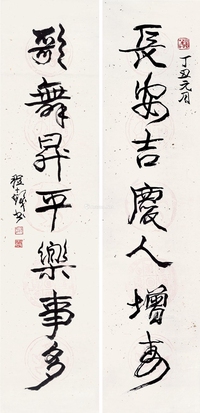 丁丑元月
長安吉慶人增壽
歌舞昇平樂事多